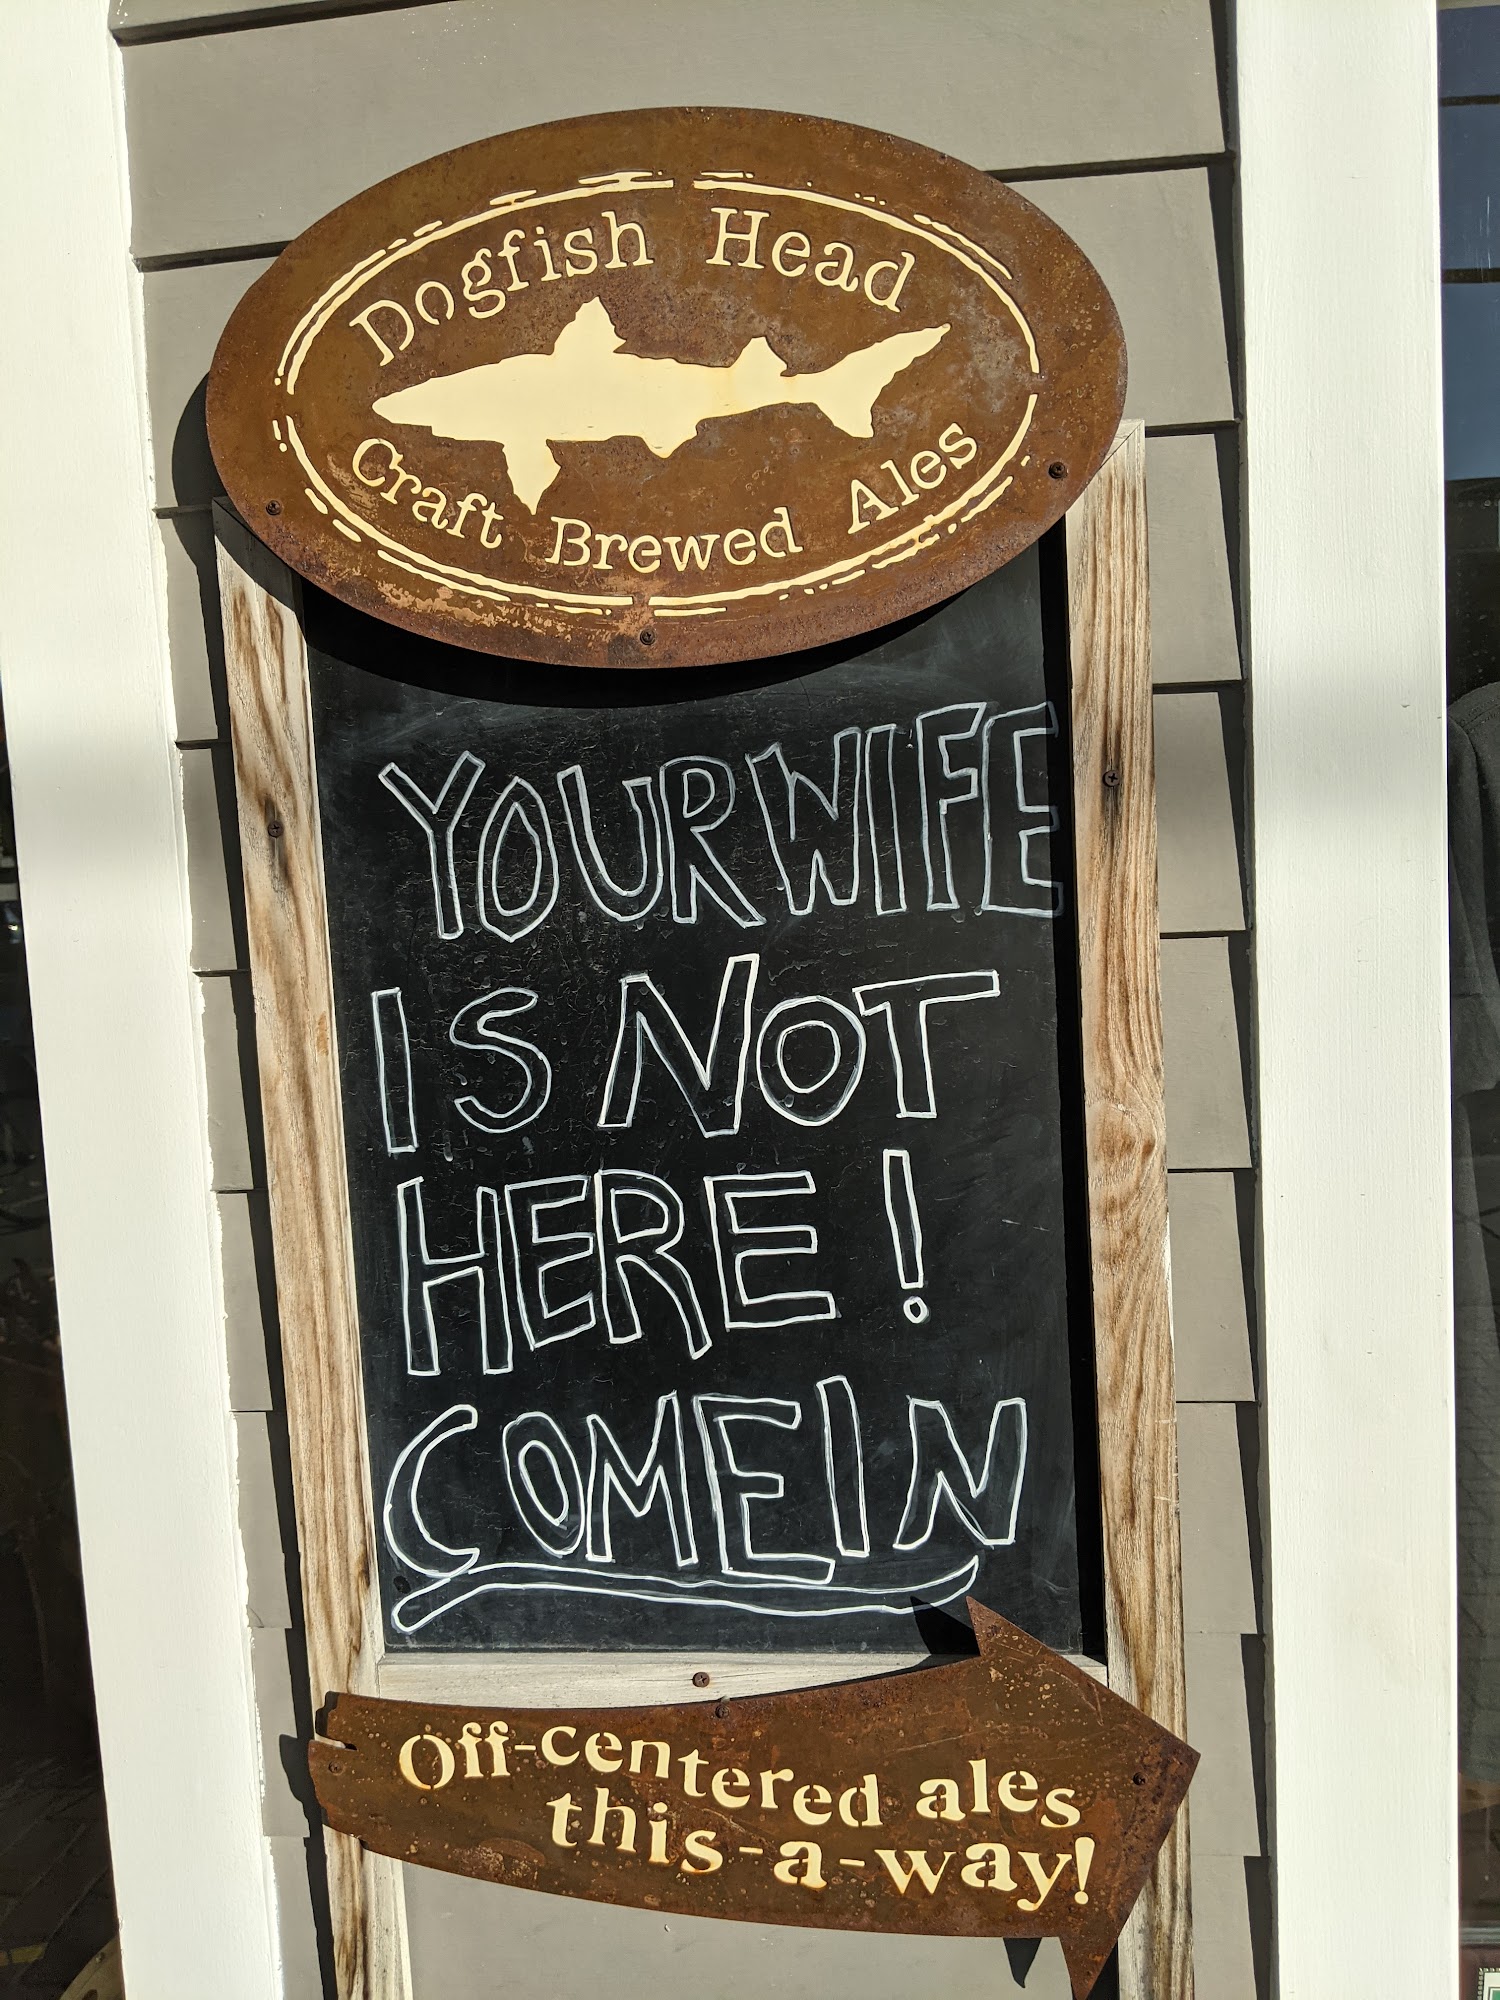 Dogfish Head
Craft Brewed Ales
YOUR WIFE
IS NOT
HERE!
COME IN
Off-centered ales
this-a-way!